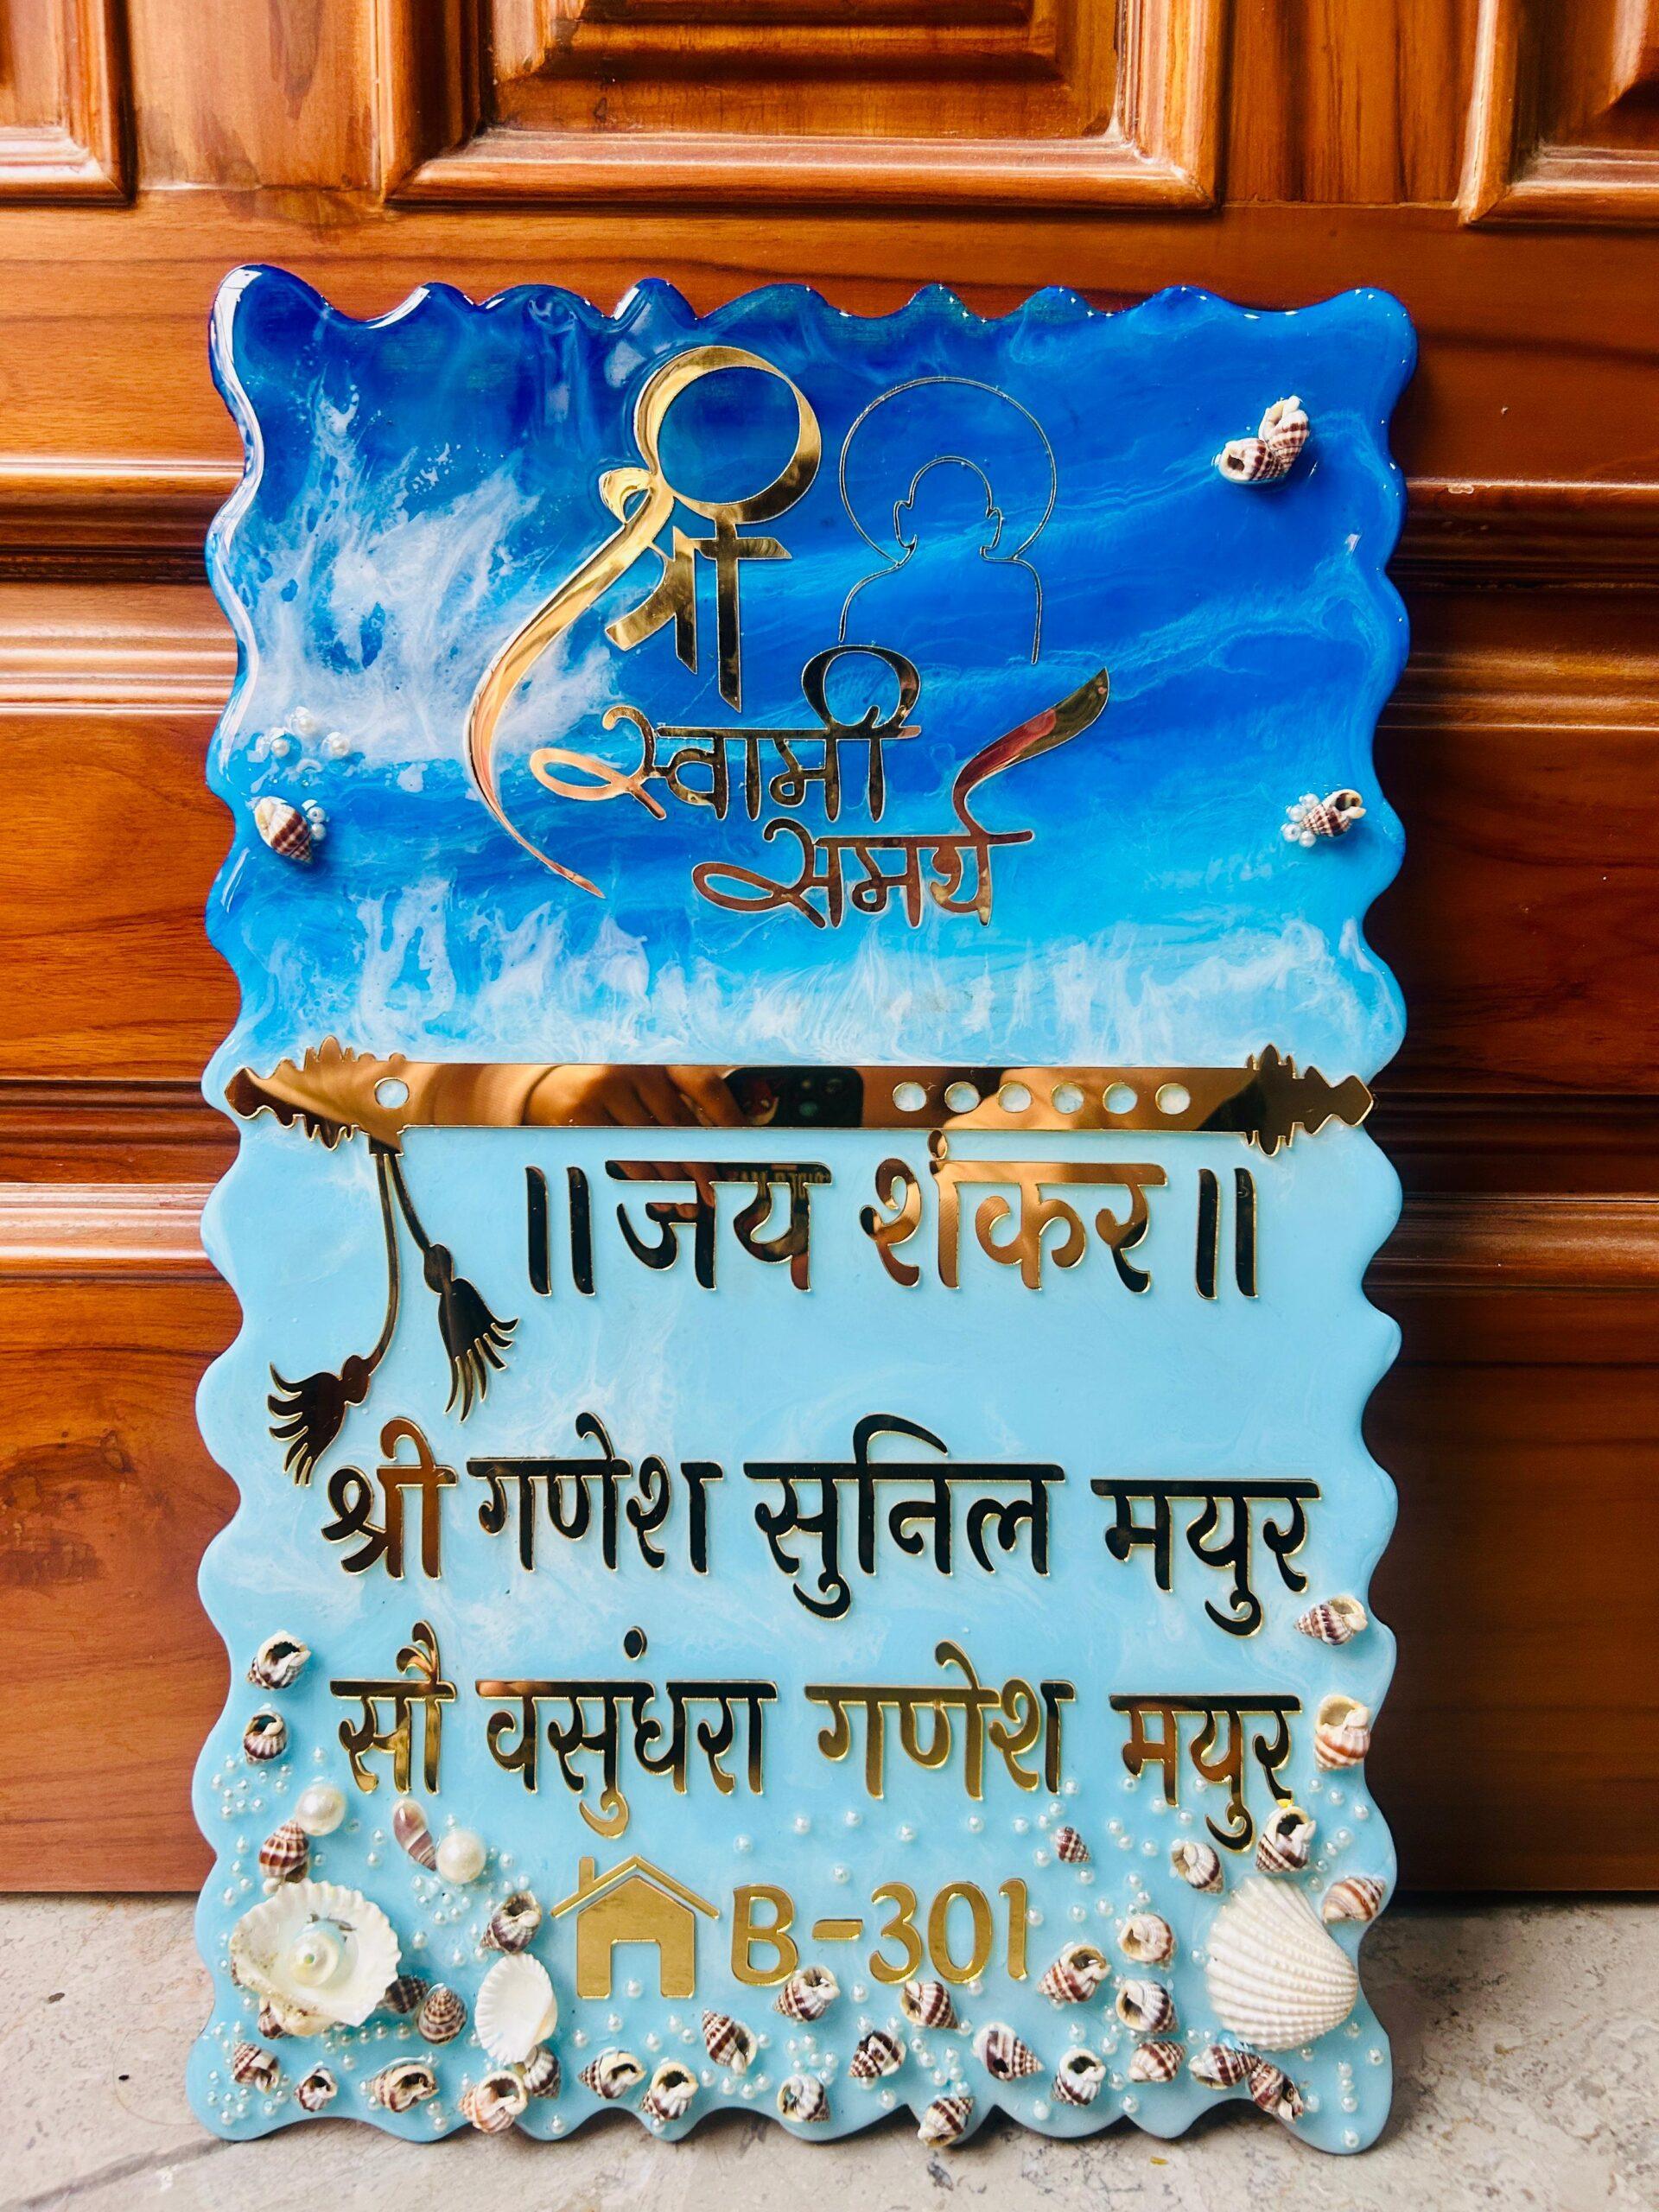 श्री
स्वामी
समर्थ
॥ जय शंकर ॥
श्री गणेश सुनिल मयुर
सौ वसुंधरा गणेश मयुर
B-301